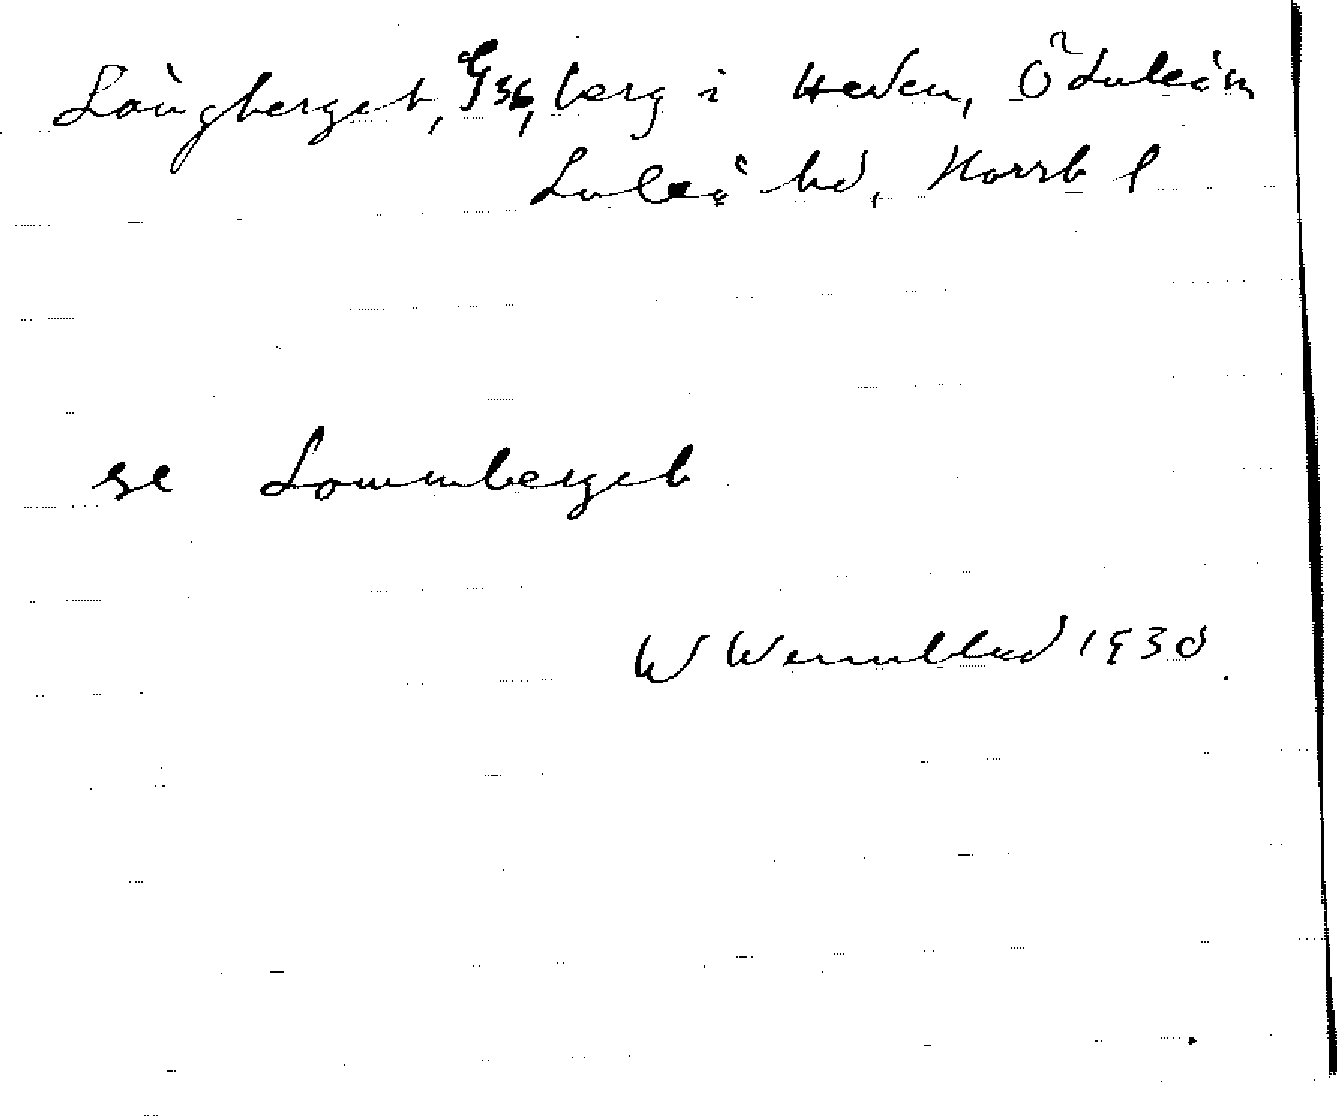 Långberget, G36, berg i Heden, Ö Luleå sn
Luleå hd, Norrb l
se Lommberget
W Wennblad 1930